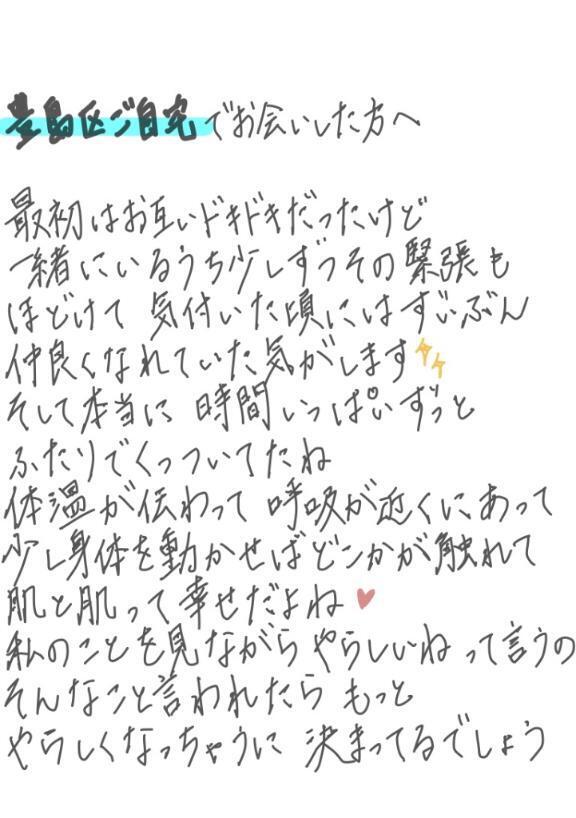 豊島区ご自宅でお会いした方へ
最初はお互いドキドキだったけど
一緒にいるうち少しずつその緊張も
ほどけて 気付いた頃にはずいぶん
仲良くなれていた気がします
そして本当に 時間いっぱいずっと
ふたりでくっついてたね
体温が伝わって 呼吸が近くにあって
少し身体を動かせばどこかが触れて
肌と肌って幸せだよね
私のことを見ながら やらしいねって言うの
そんなこと言われたら もっと
やらしくなっちゃうに 決まってるでしょう